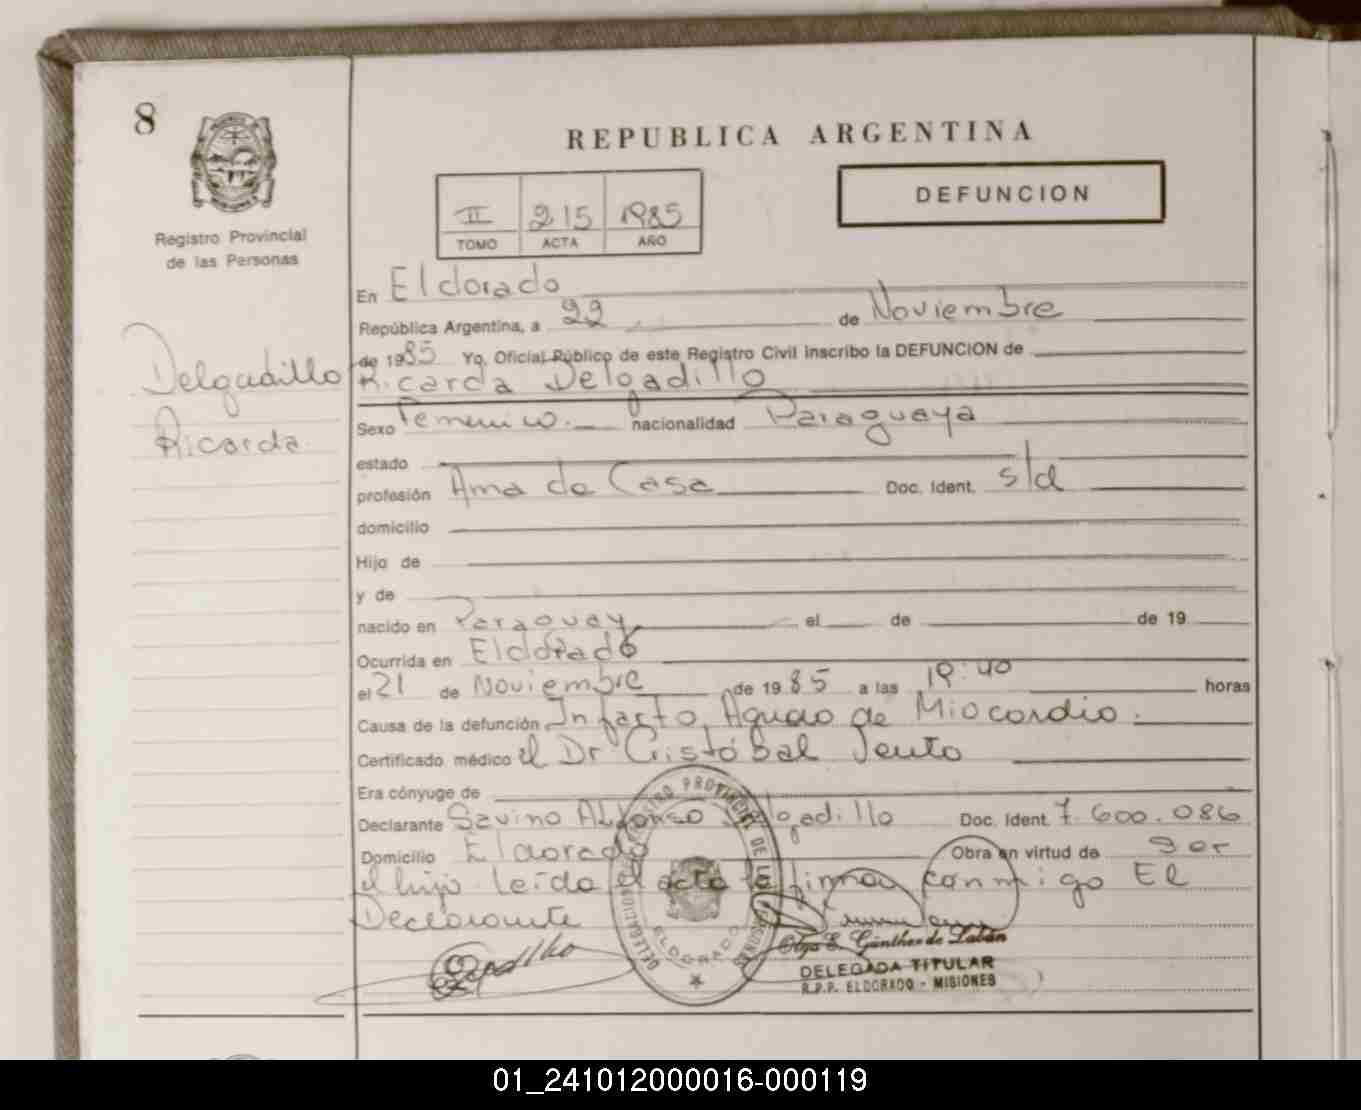 8
REPUBLICA ARGENTINA
DEFUNCION
II 215 1985
TOMO ACTA AÑO
Registro Provincial
de las Personas
Delguadillo
Ricarda
En Eldorado
República Argentina, a 22 de Noviembre
de 1985 Yo, Oficial Público de este Registro Civil inscribo la DEFUNCION de
Ricarda Delgadillo
Sexo Femenino. nacionalidad Paraguaya
estado
profesión Ama de Casa Doc. Ident. s/d
domicilio
Hijo de
y de
nacido en Paraguay el de de 19
Ocurrida en Eldorado
el 21 de Noviembre de 1985 a las 19:40 horas
Causa de la defunción Infarto Agudo de Miocardio.
Certificado médico el Dr Cristóbal
Era cónyuge de
Declarante Savino Alfonso Delgadillo Doc. Ident. 7.600.086
Domicilio Eldorado Obra en virtud de Ser
el hijo leída el acta la firma conmigo El
Declarante
REGISTRO PROVINCIAL DE LAS PERSONAS
DELEGACION
ELDORADO
Olga E. Günther de Labán
DELEGADA TITULAR
R.P.P. ELDORADO - MISIONES
01_241012000016-000119